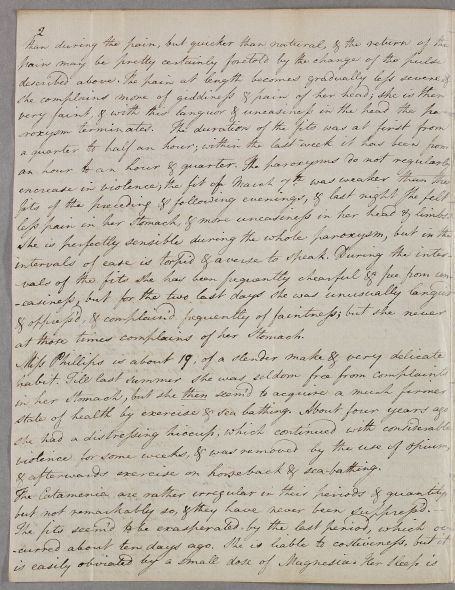 2
than during the pain, but quicker than natural, & the return of the
pain may be pretty certainly foretold by the change of the pulse
described above. The pain at length becomes gradually less severe, &
she complains more of giddiness & pain of her head; she is then
very faint, & with this languor & uneasiness in the head the pa-
roxysm terminates. The duration of the fits was at first from
a quarter to half an hour; within the last week it has been from
an hour to an hour & quarter. The paroxysms do not regularly
encrease in violence; the fit of March 7th was weaker than the
fits of the preceding & following evenings, & last night she felt
less pain in her Stomach, & more uneasiness in her head & limbs.
She is perfectly sensible during the whole paroxysm, but in the
intervals of ease is torpid & averse to speak. During the inter-
vals of the fits she has been frequently chearful & free from un-
-easiness, but for the two last days she was unusually languid
& oppress'd, & complain'd frequently of faintness; but she never
at those times complains of her Stomach.
Miss Phillips is about 19, of a slender make & very delicate
habit. Till last summer she was seldom free from complaints
in her Stomach, but she then seem'd to acquire a much firmer
state of health by exercise & sea bathing. About four years ago
she had a distressing hiccup, which continued with considerable
violence for some weeks, & was removed by the use of opium,
& afterwards exercise on horseback & sea-bathing.
The Catamenia are rather irregular in their periods & quantity,
but not remarkably so, & they have never been suppress'd.
The fits seem'd to be exasperated by the last period, which oc-
-curred about ten days ago. She is liable to costiveness, but it
is easily obviated by a small dose of Magnesia. Her sleep is